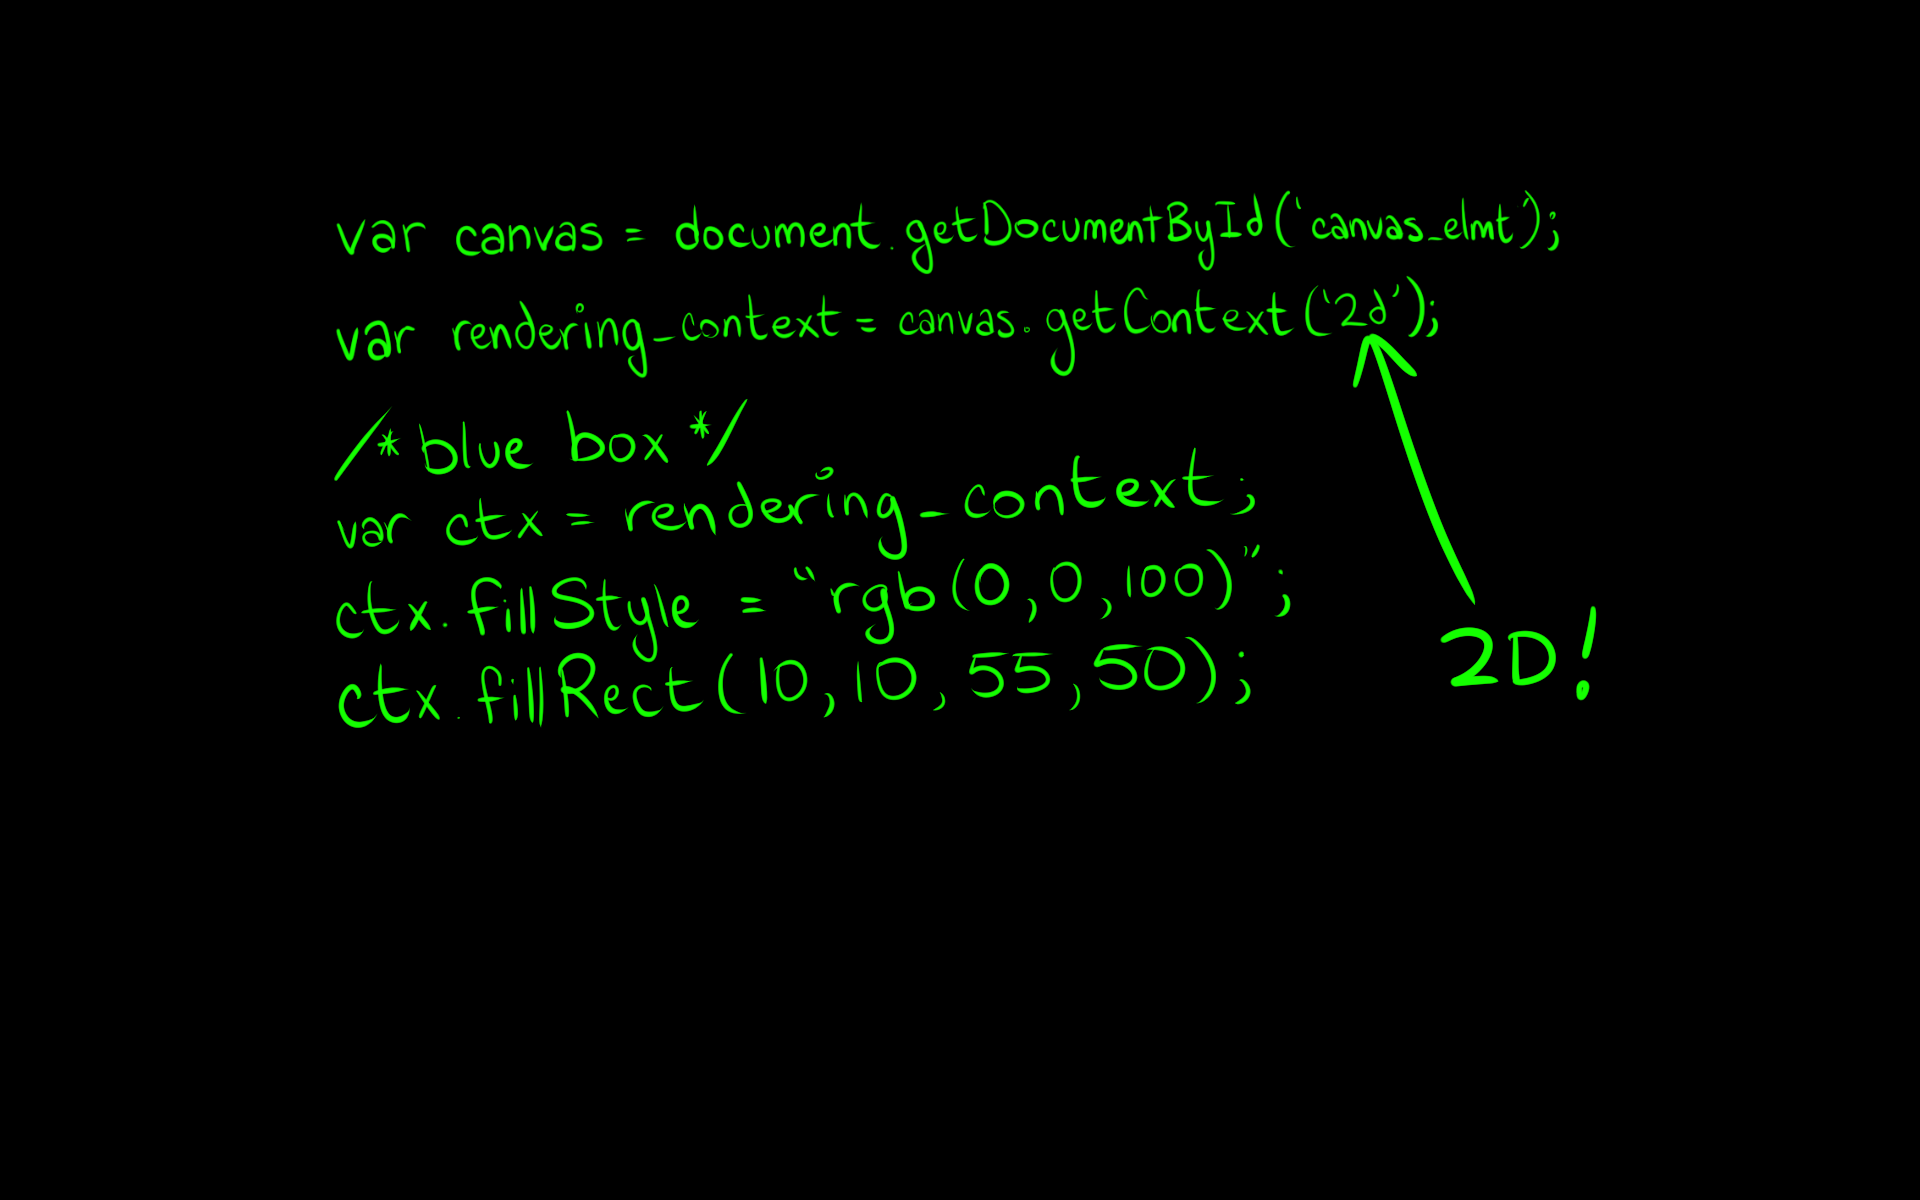 var canvas = document.getDocumentById('canvas_elmt');
var rendering_context = canvas.getContext('2d');
/* blue box */
var ctx = rendering_context;
ctx.fillStyle = "rgb(0,0,100)";
ctx.fillRect(10,10,55,50);
2D!